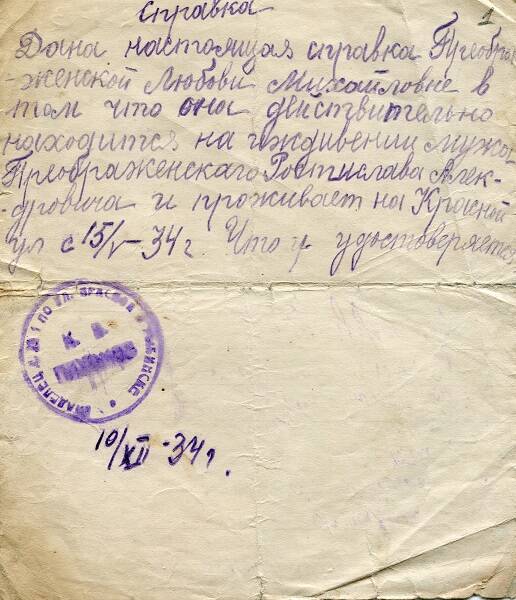 справка
1
Дана настоящая справка Преобра
-женской Любови Михайловне в
том что она действительно
находится на иждивении мужа
Преображенскаго Ростислава Алек-
-дровича и проживает на Красной
ул с 15/V-34 г. Что и удостоверяется
ВЛАДЕЛЕЦ Д. № 1 ПО УЛ. КРАСНОЙ РЫБИНСКЕ
10/XII-34 г.